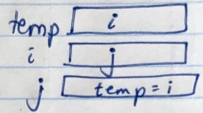 temp i
i j
j temp = i